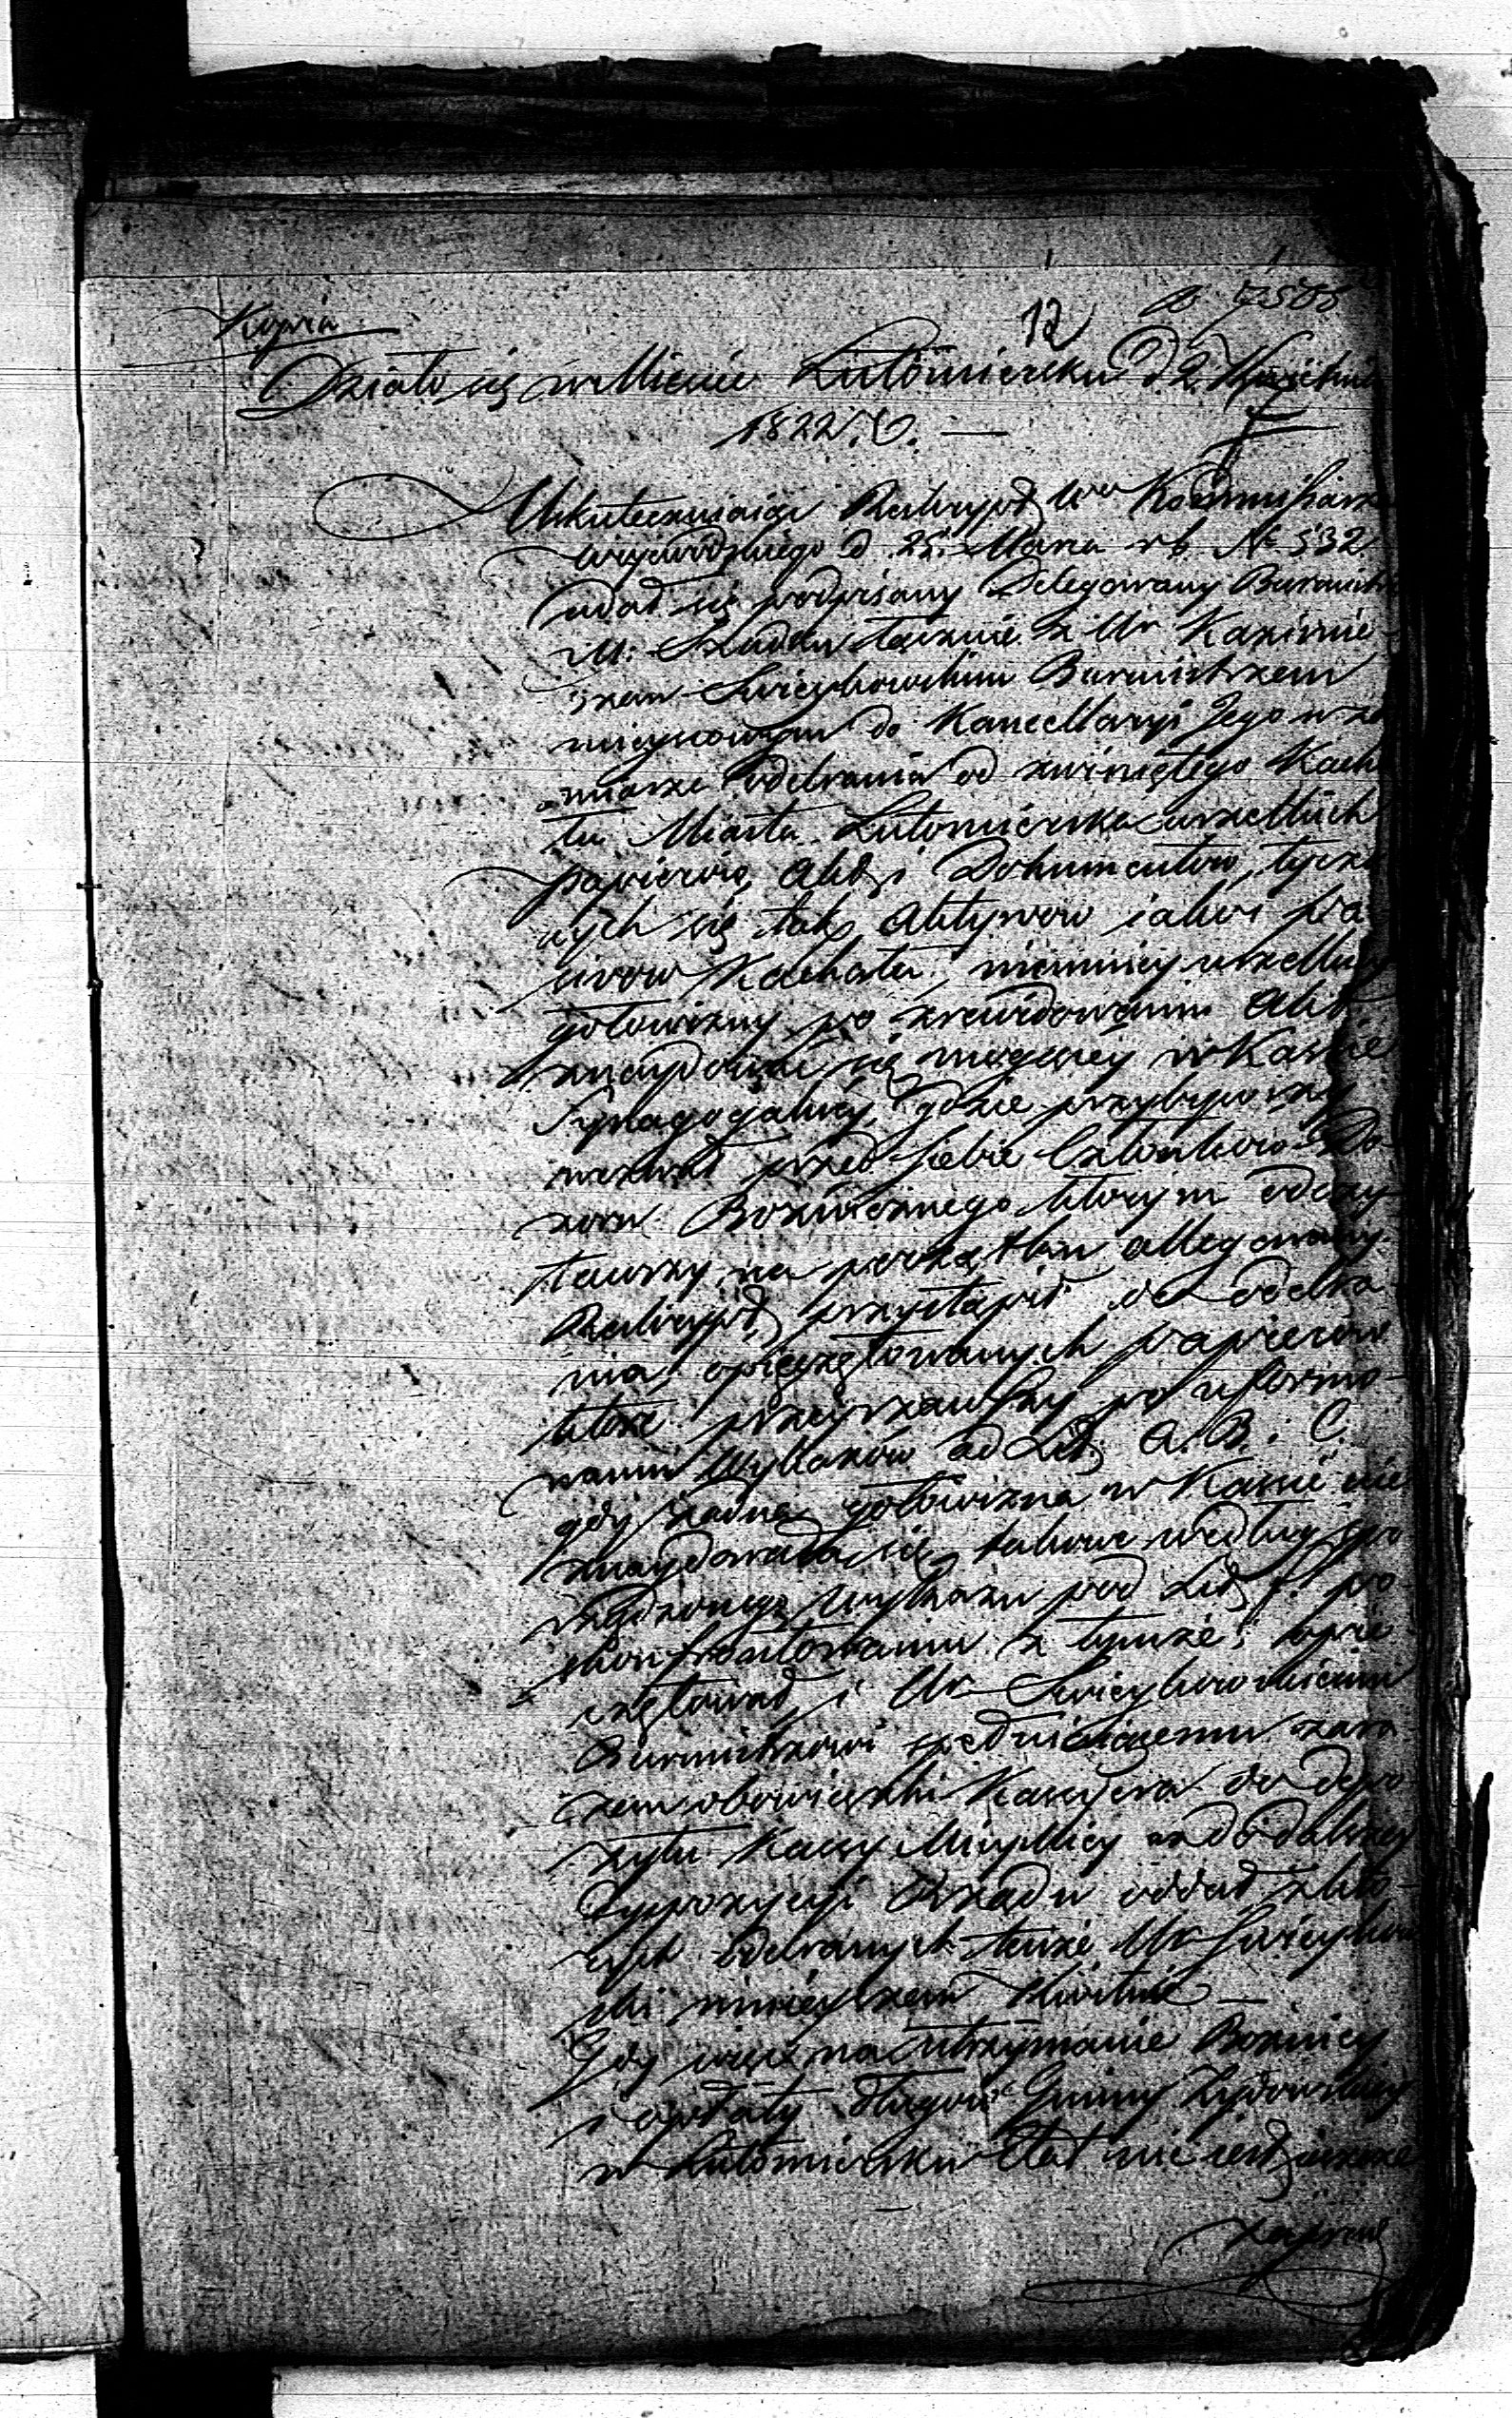 Kopia
12
Działo się w Mieście Lutomiersku d 2. Kwietnia
1822. r. —
Uskuteczniaiąc Reskrypt Kommissarza
Woiewodzkiego d 25. Marca rb N 532
udał się podpisany Delegowany Burmistrz
M: Szadku łącznie z Ur Kazimie-
rzem Swieykowskim Burmistrzem
mieyscowym do Kancellaryi Jego w za
miarze odebrania od zwiniętego Kaha
łu Miasta Lutomierska wszelkich
papierow, Akt i Dokumentow, tycza
cych się tak Aktywow iako i pas
sivow Kahału, niemniey wszelkiey
gotowizny po zrewidowaniu Akt
znaydować się mogącey w Kassie
Synagogalney, gdzie przybywszy
wezwał przed siebie Członkow Do
zoru Bożniczego ktorym odczy
tawszy na początku allegowany
Reskrypt, przystąpił do odebra
nia opieczętowanych papierow
ktore przeyrzawszy po uformo-
waniu Wykazów ad Lit. A. B. i C.
gdy żadna gotowizna w Kassie nie
znaydowała się, takowe według spo
rządzonego Wykazu pod Lit. po
skonfrontowaniu z tymże, opie
czętował, i Ur Swieykowskiemu
Burmistrzowi pełniącemu zara
zem obowiązki Kassyera do depo
zytu Kassy Mieyskiey aż do dalszey
dyspozycyi Rządu oddał, z któ-
rych odebranych tenże Ur Swieykow
ski ninieyszem kwituie —
Gdy więc na utrzymanie Bożnicy
i opłaty długow Gminy Żydowskiey
w Lutomiersku Etat nie iest ieszcze